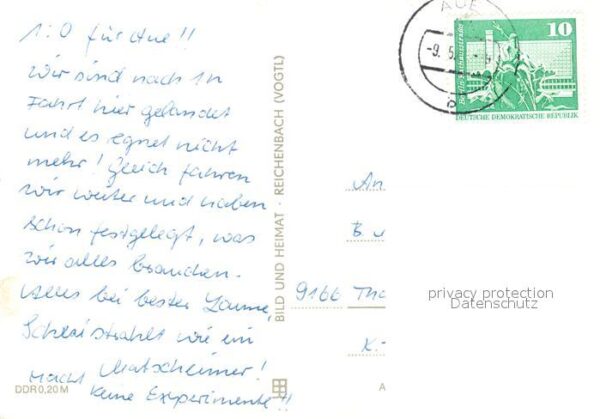 1:0 für Aue!!
Wir sind nach 1h
Fahrt hier gelandet
und es regnet nicht
mehr! Gleich fahren
wir weiter und haben
schon festgelegt, was
wir alles brauchen.
Alles bei bester Laune,
strahlt wie ein
Matscheimer!
Macht keine Experimente!!
DDR 0,20 M
BILD UND HEIMAT · REICHENBACH (VOGTL)
AUE
-9.5.
10
DEUTSCHE DEMOKRATISCHE REPUBLIK
An
B
9166 Tha
K.-
A
privacy protection
Datenschutz